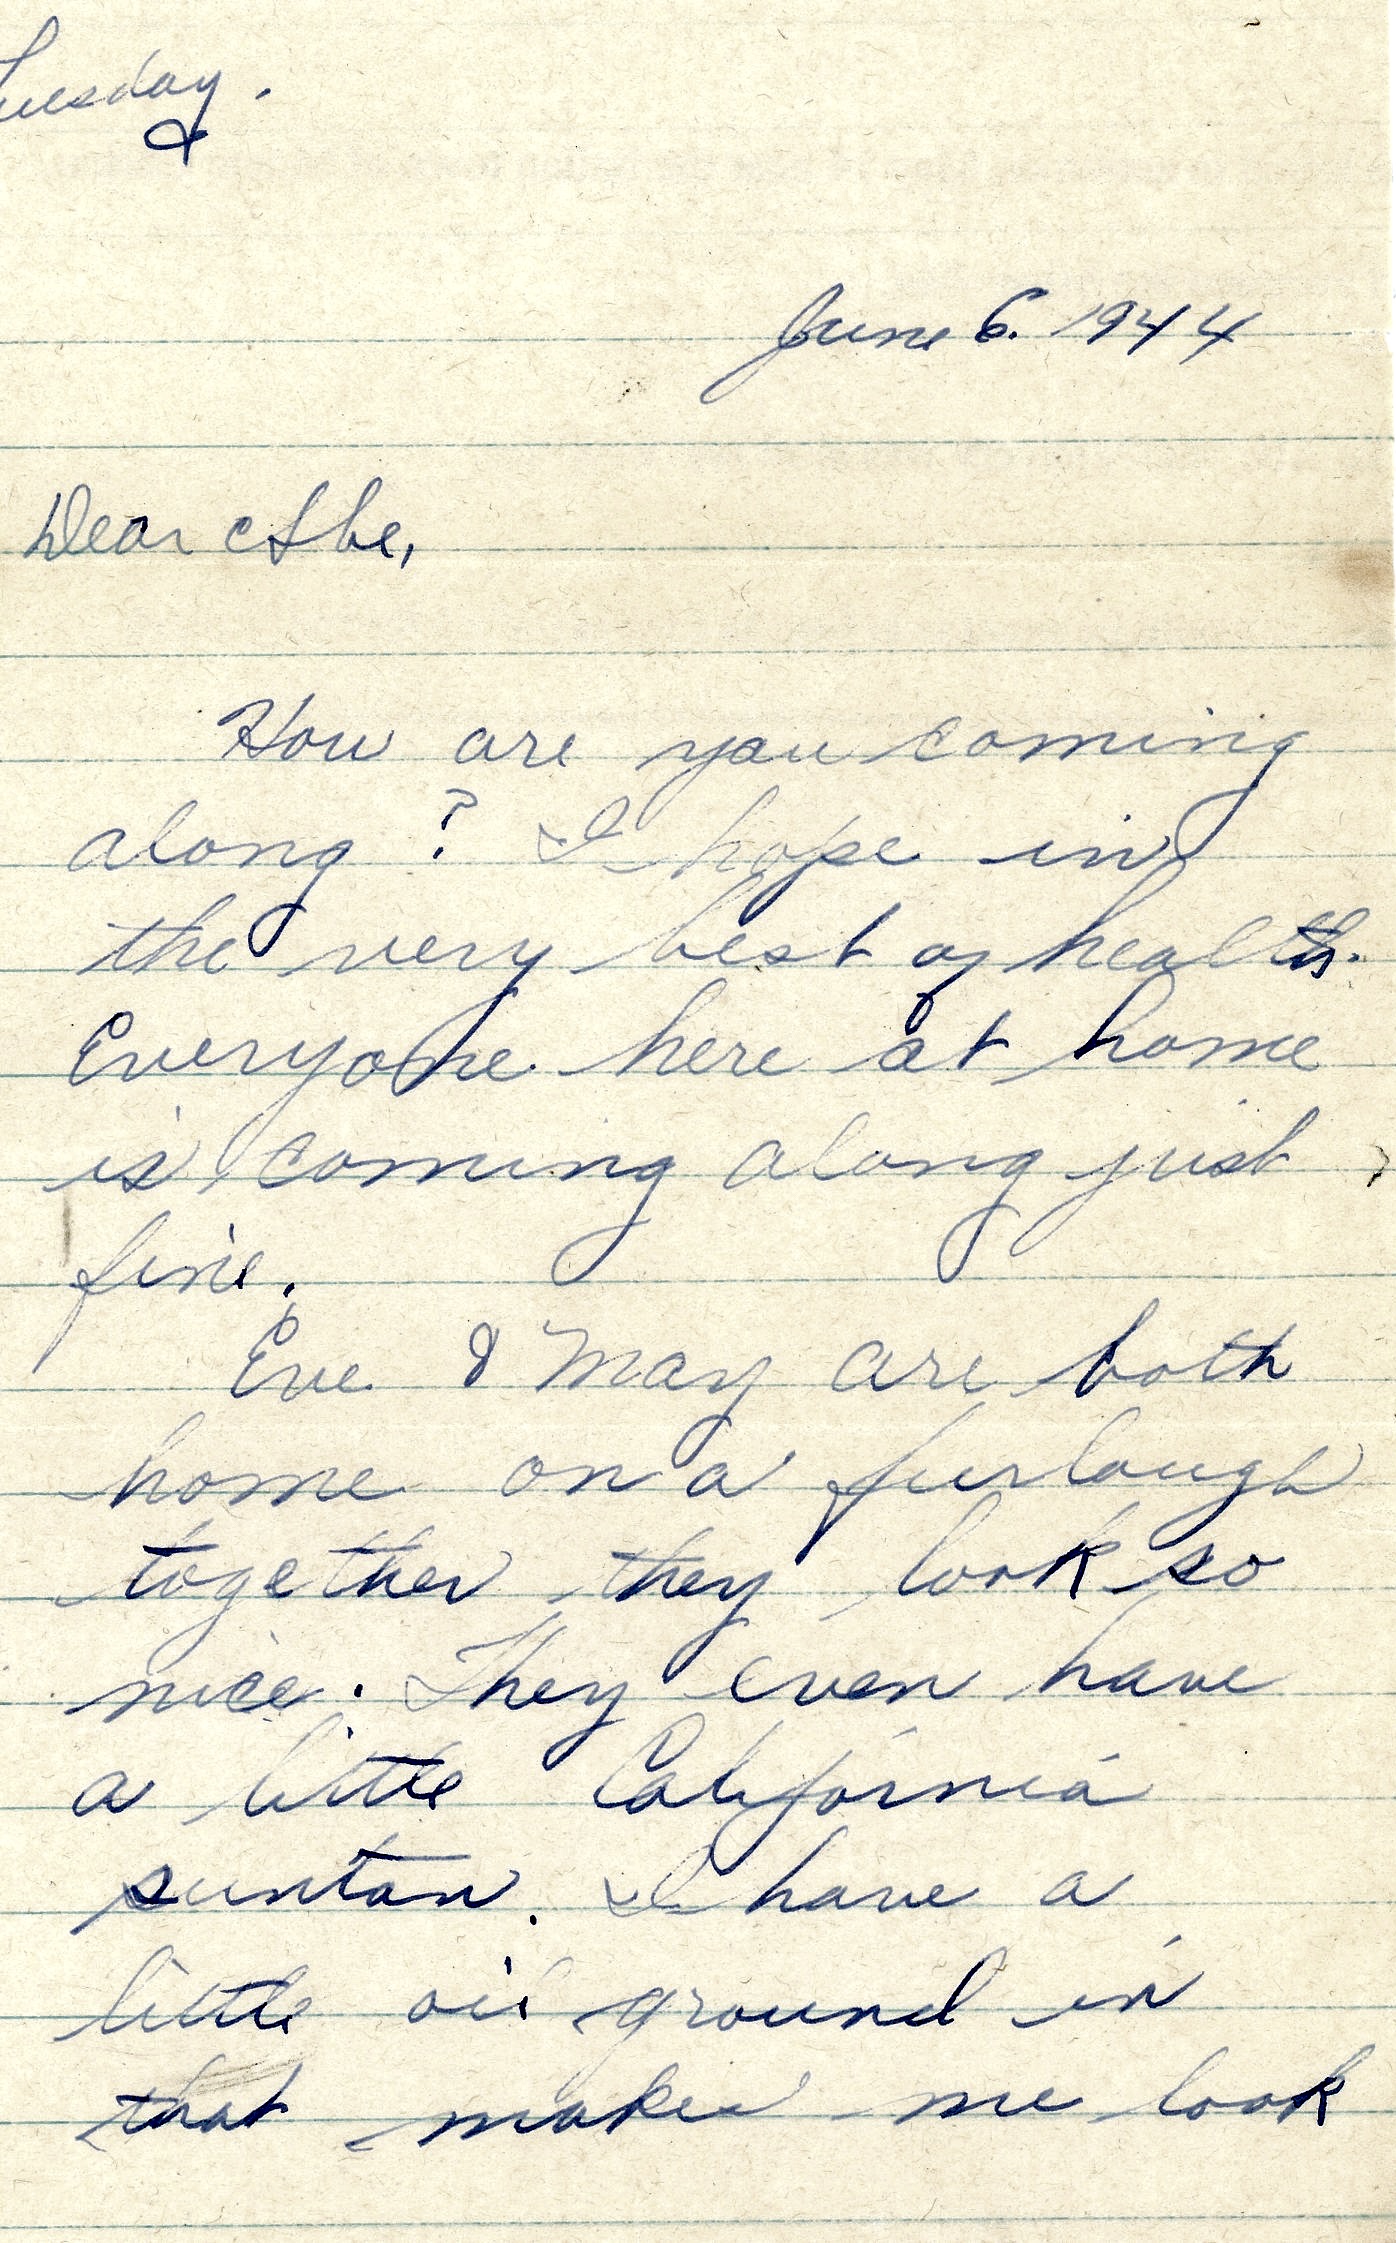 Tuesday.
June 6. 1944
Dear Abe,
How are you coming
along? I hope in
the very best of health.
Everyone here at home
is coming along just
fine.
Eve & May are both
home on a furlough
together they look so
nice. They even have
a little California
suntan. I have a
little oil ground in
that makes me look